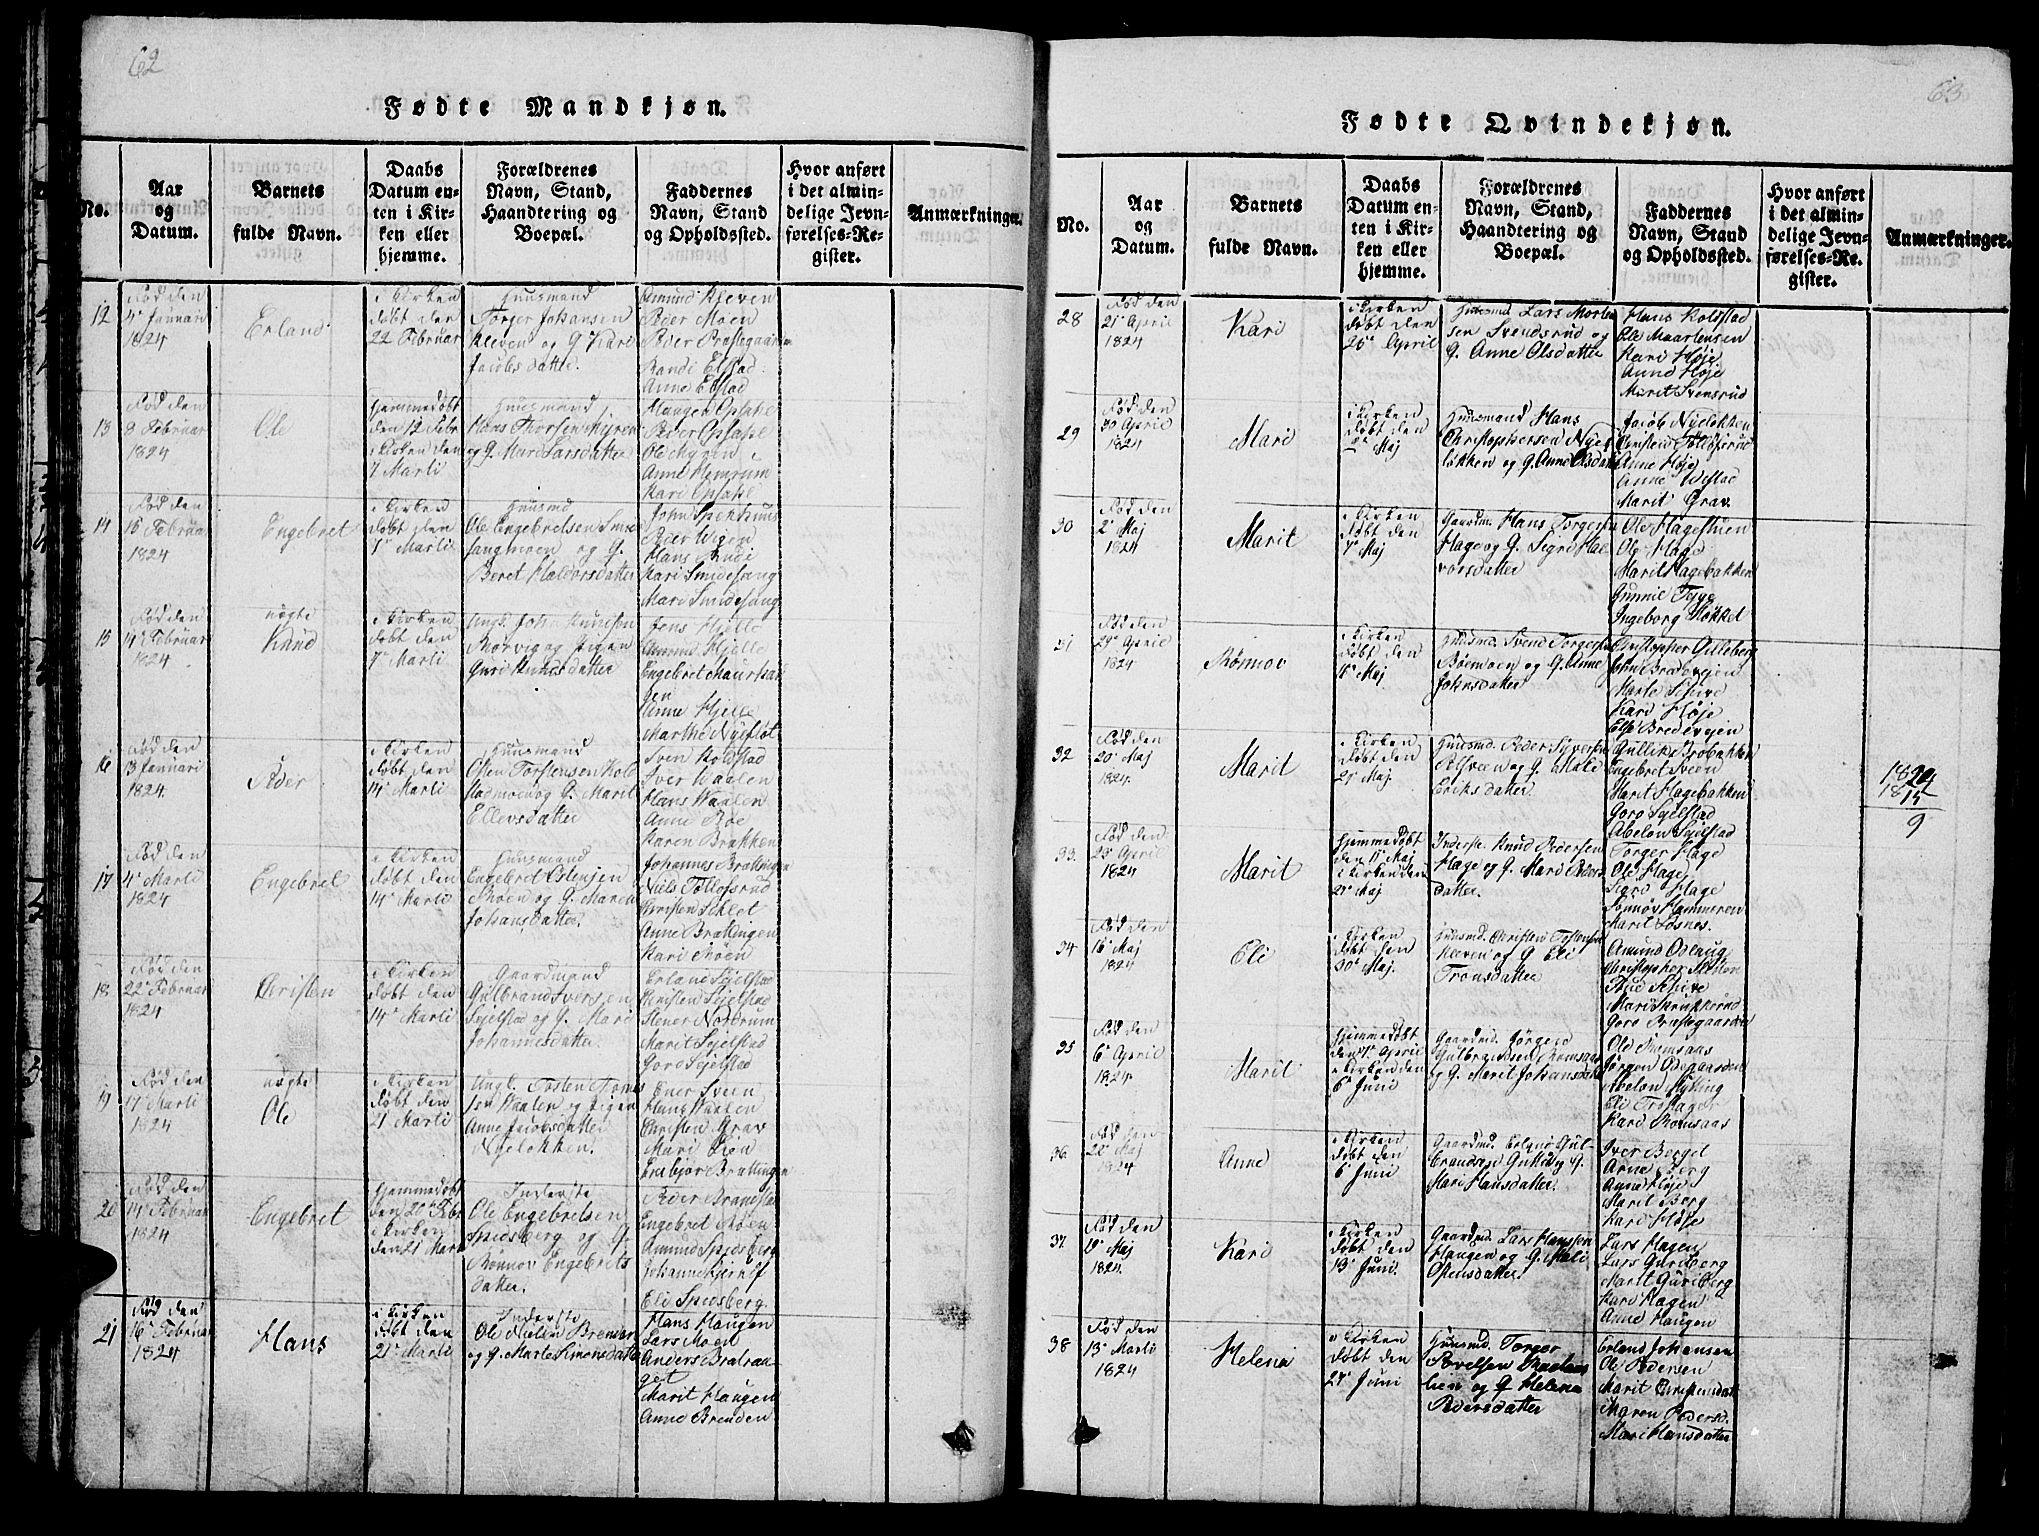 62
Fødte Mandkjøn.
No.
Aar
og
Datum.
Barnets
fulde Navn.
Daabs
Datum en-
ten i Kir-
ken eller
hjemme.
Forældrenes
Navn, Stand,
Haandtering og
Boepæl.
Faddernes
Navn, Stand
og Opholdssted.
Hvor anført
i det almin-
delige Jevn-
førelses-Re-
gister.
Anmærkninger.
12
Fød den
4 Januari
1824
Erland
i Kirken
døbt den
22 Februar
Huusmand
Torger Johansen
Kleven og G Kari
Jacobsdatter.
Amund Kleven
Peder Moen
Peder Præstegaarden
Randi Elstad
Anne Elstad
13
Fød den
8 Februar
1824
Ole
Hjemmedøbt
den 12 Febr
i Kirken den
7 Marti
Huusmand
Hans Thorsen Myren
og G. Mari Larsdatter
Maagen Opsahl
Peder Opsahl
Ole Myren
Anne Hemrum
Kari Opsahl
14
Fød den
15 Februar
1824
Engebret
i Kirken
døbt den
7 Marti
Huusmd
Ole Engebretsen Smie
langmoen og G.
Beret Haldorsdatter
John
Peder Vigen
Hans Rudi
Kari Smidesang
Mari Smidesang
15
Fød den
14 Februar
1824
uægte
Knud
i Kirken
døbt den
7 Marti
Ungk. John Knudsen
og Pigen
Guri Hansdatter
Jens Hjelle
Amund Hjelle
Engebret
gen
Anne Hjelle
Marthe
16
Fød den
13 Januari
1824.
Peder
i Kirken
døbt den
14 Marti
Huusmand
Osten Torstensen Kold
stadmoen og G. Marit
Ellevsdatter
Sven Koldstad
Iver Waalen
Hans Waalen
Anne Boe
Karen Brækken
17
Fød den
4 Marti
1824
Engebret
i Kirken
døbt den
14 Marti
Huusmand
Engebret Estensen
Moen og G. Maren
Johansdatter.
Johannes Brattingen
Niels Tollofsrud
Christen Schlet
Anne Brattingen
Kari Moen
18
Fød den
22 Februar
1824
Christen
i Kirken
døbt den
14 Marti
Gaardmand
Gulbrand Iversen
Sylstad og G. Mari
Johannesdatter.
Erland Sylstad
Christen Sylstad
Stener Nordrum
Marit Sylstad
Goro Sylstad
19
Fød den
17 Marti
1824
uægte
Ole
i Kirken
døbt den
21 Marti
Ungk. Torsten
sen Waalen og Pigen
Anne Jacobsdatter
Nyeløkken.
Ener Sveen
Hans Waalen
Christen Grav
Mari Lien
Enebjør Brattingen
20
Fød den
14 Februar
1824
Engebret
Hjemmedøbt
den 20 Febr
i Kirken
den 21 Marti
Inderste
Ole Engebretsen
Spidsberg og G.
Rønnov Engebrets
datter.
Peder Brandstad
Engebret Moen
Amund Spidsberg
Johanne
Eli Spidsberg.
21
Fød den
16 Februar
1824
Hans
i Kirken
døbt den
21 Marti
Inderste
Ole Nielsen Brenden
og G. Marte Simensdatter
Hans Haugen
Lars Moen
Anders Bratran-
get
Marit Haugen
Anne Brenden
63
Fødte Qvindekjøn.
No.
Aar
og
Datum.
Barnets
fulde Navn.
Daabs
Datum en-
ten i Kir-
ken eller
hjemme.
Forældrenes
Navn, Stand,
Haandtering og
Boepæl.
Faddernes
Navn, Stand
og Opholdssted.
Hvor anført
i det almin-
delige Jevn-
førelses-Re-
gister.
Anmærkninger.
28
Fød den
21 April
1824
Kari
i Kirken
døbt den
25 April
Huusmd Lars Morten
sen Svendsrud og
G. Anne Olsdatter
Hans Kolstad
Ole Maartensen
Kari Høje
Anne Høje
Marit Svensrud
29
Fød den
30 April
1824
Mari
i Kirken
døbt den
2 Maj
Huusmand Hans
Christophersen Nye
løkken og G. Anne Olsdatter
Jacob Nyeløkken
Christen Tollofsrud
Anne Høje
Anne Widstad
Marit Grav.
30
Fød den
2 Maj
1824
Marit
i Kirken
døbt den
7 Maj
Gaardm. Hans Torgersen
Hage og G. Sigri Hal
vorsdatter
Ole Hagestuen
Ole Hage
Marit Hagebakken
Gunnil Teige
Ingeborg Støkket
31
Fød den
29 April
1824
Rønnov
i Kirken
døbt den
Maj
Huusmd. Svend Torgersen
Bøemoen og G. Anne
Johnsdatter
Christopher Gilleberg
John Bredevejen
Marte Schive
Kari Høje
Else Bredevejen
32
Fød den
20 Maj
1824.
Marit
i Kirken
døbt den
27 Maj
Huusmd. Peder Syversen
og G. Mali
Eriksdatter
Gullik Brobakken
Engebret Sveen
Marit Hagebakken
Goro Sylstad
Abelon Sylstad
1824
1815
9
33.
Fød den
25 April
1824
Marit
Hjemmedøbt
den 1 Maj
i Kirken den
27 Maj
Inderste Knud Pedersen
Hage og G. Mari Peders
datter.
Torger Hage
Ole Hage
Sigri Hage
Rønnov Hammeren
Marit Losnes.
34
Fød den
16 Maj
1824
Eli
i Kirken
døbt den
30 Maj.
Huusmd. Christen Tostensen
Kleven og G Eli
Tronsdatter
Amund Odlaug
Christopher
Poul Schive
Mari
Goro Præstegaarden
35
Fød den
6 April
1824.
Marit
Hjemmedøbt
den 7 April
i Kirken den
6 Juni
Gaardmd. Jørgen
Gulbrandsen Romsaas
og G. Marit Johansdatter
Ole Romsaas
Jørgen Odegaarden
Abelon Kytting
Eli Troslager
Kari Romsaas
36
Fød den
22 Maj
1824
Anne
i Kirken
døbt den
6 Juni
Gaardmd. Erland Gul-
brandsen og G.
Mari Hansdatter.
Iver Berget
Arne Berg
Anne Høje
Marit Berg
Kari Høje
37
Fød den
19 Maj
1824.
Kari
i Kirken
døbt den
13 Juni
Gaardmd. Lars Hansen
Haugen og G. Mali
Ostensdatter.
Lars Hagen
Lars Guriberg
Marit Guriberg
Kari Hagen
Anne Haugen
38
Fød den
13 Marti
1824
Helena
i Kirken
døbt den
27 Juni
Huusmd. Torger
Povelsen
lien og G Helena
Pedersdatter
Erland Johansen
Ole Pedersen
Marit Christensdat
Maren Pedersd.
Mari Hansdatter